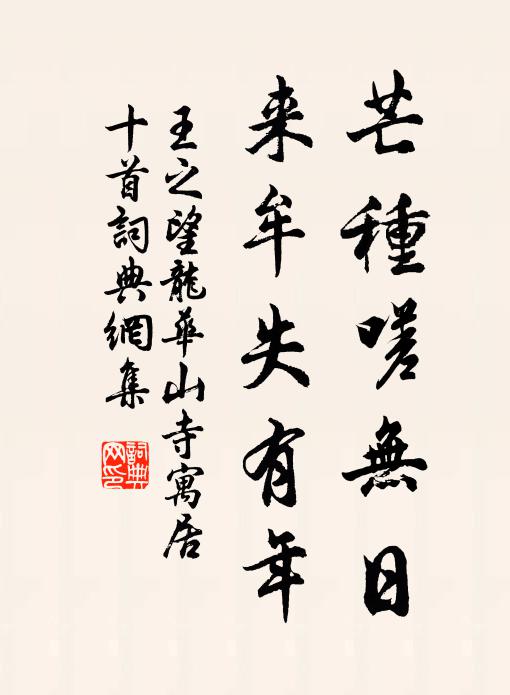 芒種嗟無日
来牟失有年
王之望龍華山寺寓居
十首詞典網集
詞典网印